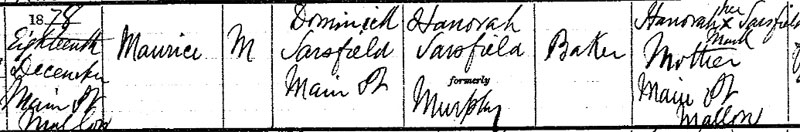 1878
Eighteenth
December
Main St
Mallow
Maurice
M
Dominick
Sarsfield
Main St
Hanorah
Sarsfield
formerly
Murphy
Baker
Hanorah x Sarsfield
her
Mark
Mother
Main St
Mallow